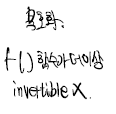 f( ) 함수가 더이상
invertible X.